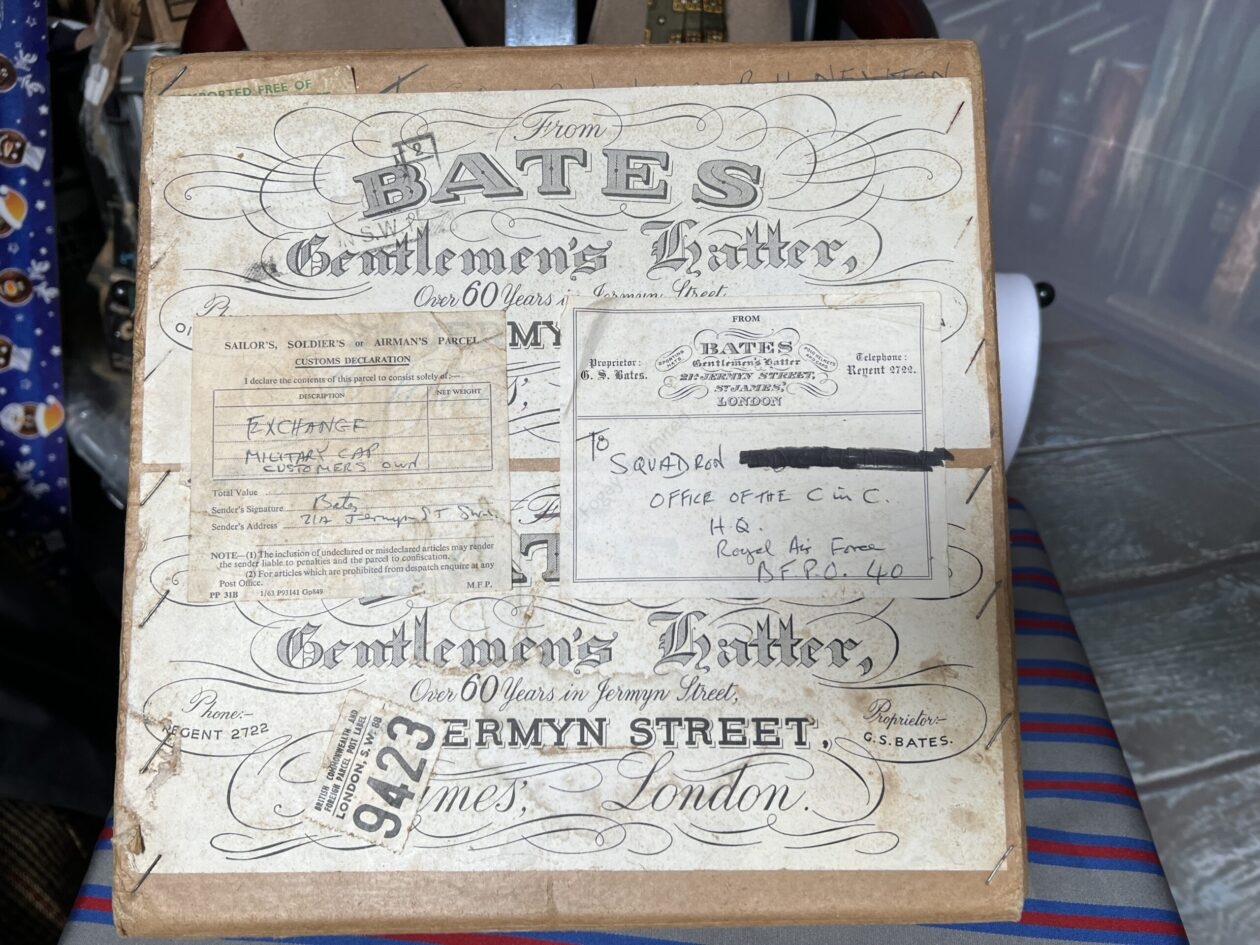 PORTED FREE OF
NEWTON
From
BATES
Gentlemen's Hatter,
Over 60 Years in Jermyn Street,
SAILOR'S, SOLDIER'S or AIRMAN'S PARCEL
CUSTOMS DECLARATION
I declare the contents of this parcel to consist solely of:—
DESCRIPTION NET WEIGHT
EXCHANGE
MILITARY CAP
CUSTOMERS OWN
Total Value
Sender's Signature Bates
Sender's Address 21A Jermyn ST
NOTE—(1) The inclusion of undeclared or misdeclared articles may render
the sender liable to penalties and the parcel to confiscation.
(2) For articles which are prohibited from despatch enquire at any
Post Office.
M.F.P.
PP 31B 1/63 P93141 Gp849
FROM
Proprietor:
G. S. Bates.
BATES
Gentlemen's Hatter
21A JERMYN STREET,
ST JAMES,
LONDON
Telephone:
Regent 2722.
To
SQUADRON
OFFICE OF THE C in C.
H.Q.
Royal Air Force
B.F.P.O. 40
Gentlemen's Hatter,
Over 60 Years in Jermyn Street,
Phone:-
REGENT 2722
ERMYN STREET,
Proprietor:-
G.S.BATES.
mes, London.
BRITISH COMMONWEALTH AND
FOREIGN PARCEL POST LABEL
LONDON, S.W.
9423